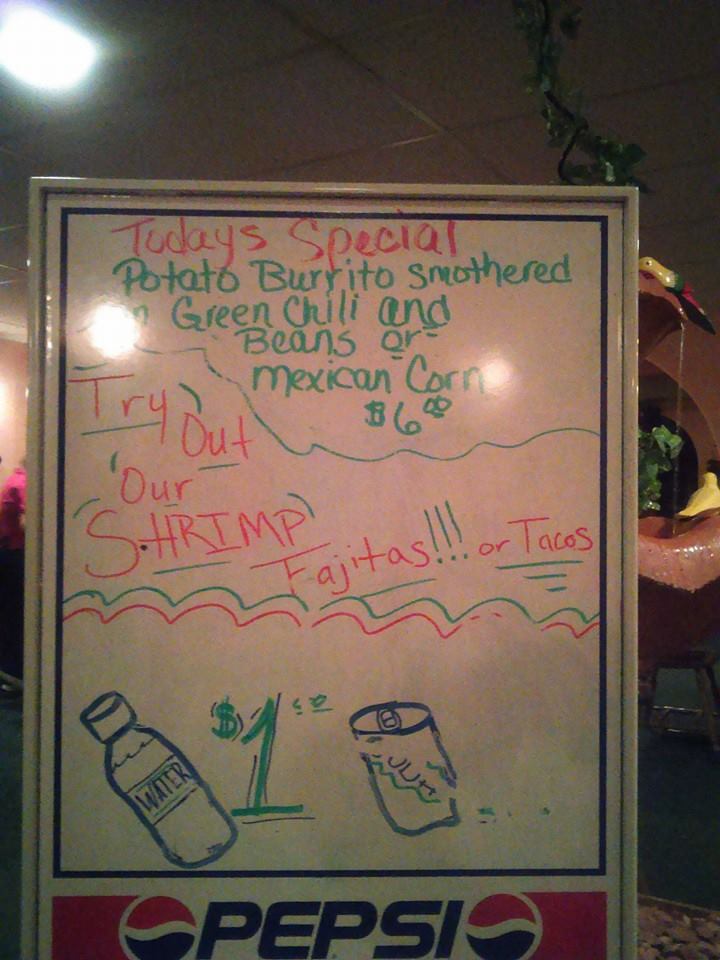 Todays Special
Potato Burrito smothered
in Green Chili and
Beans or
mexican Corn
$6.00
Try Out
Our
SHRIMP Fajitas!!! or Tacos
WATER $1.00
PEPSI